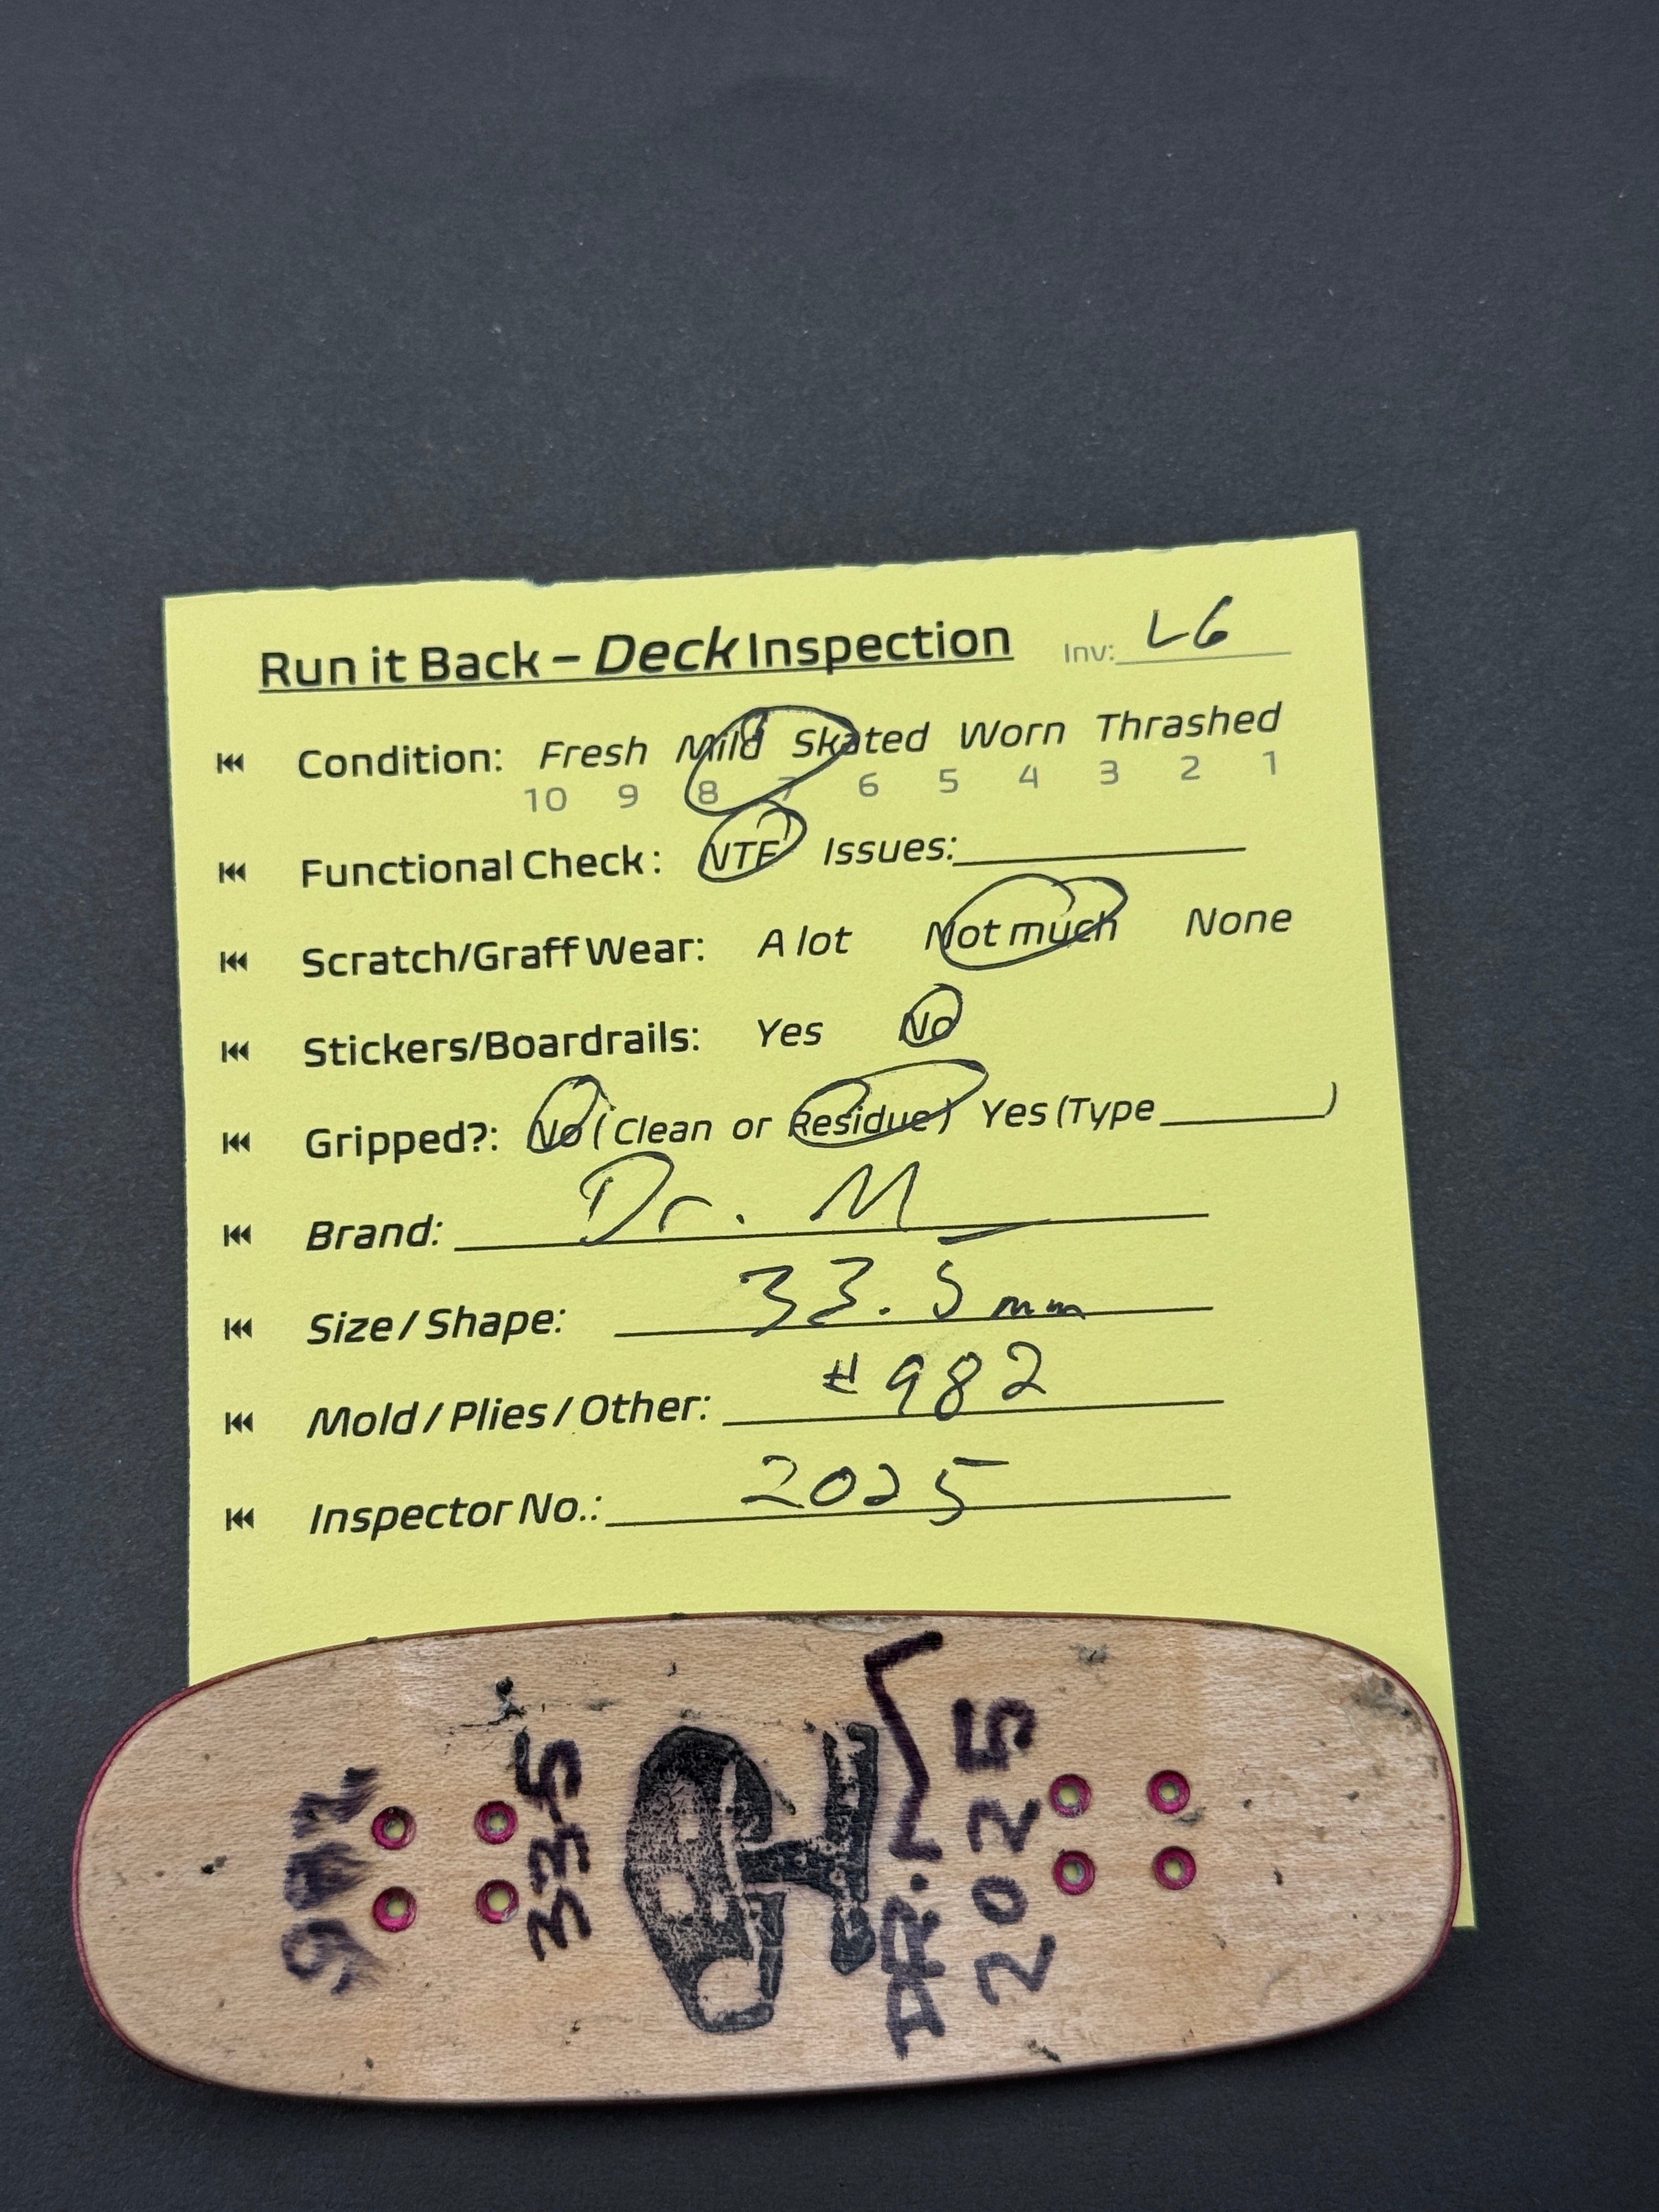 Run it Back – Deck Inspection Inv: L6
Condition: Fresh Mild Skated Worn Thrashed
10 9 8 7 6 5 4 3 2 1
Functional Check: NTF Issues:
Scratch/Graff Wear: A lot Not much None
Stickers/Boardrails: Yes No
Gripped?: No (Clean or Residue) Yes (Type )
Brand: Dr. M
Size / Shape: 33.5mm
Mold / Plies / Other: #982
Inspector No.: 2025
982
33.5
DR.
2025